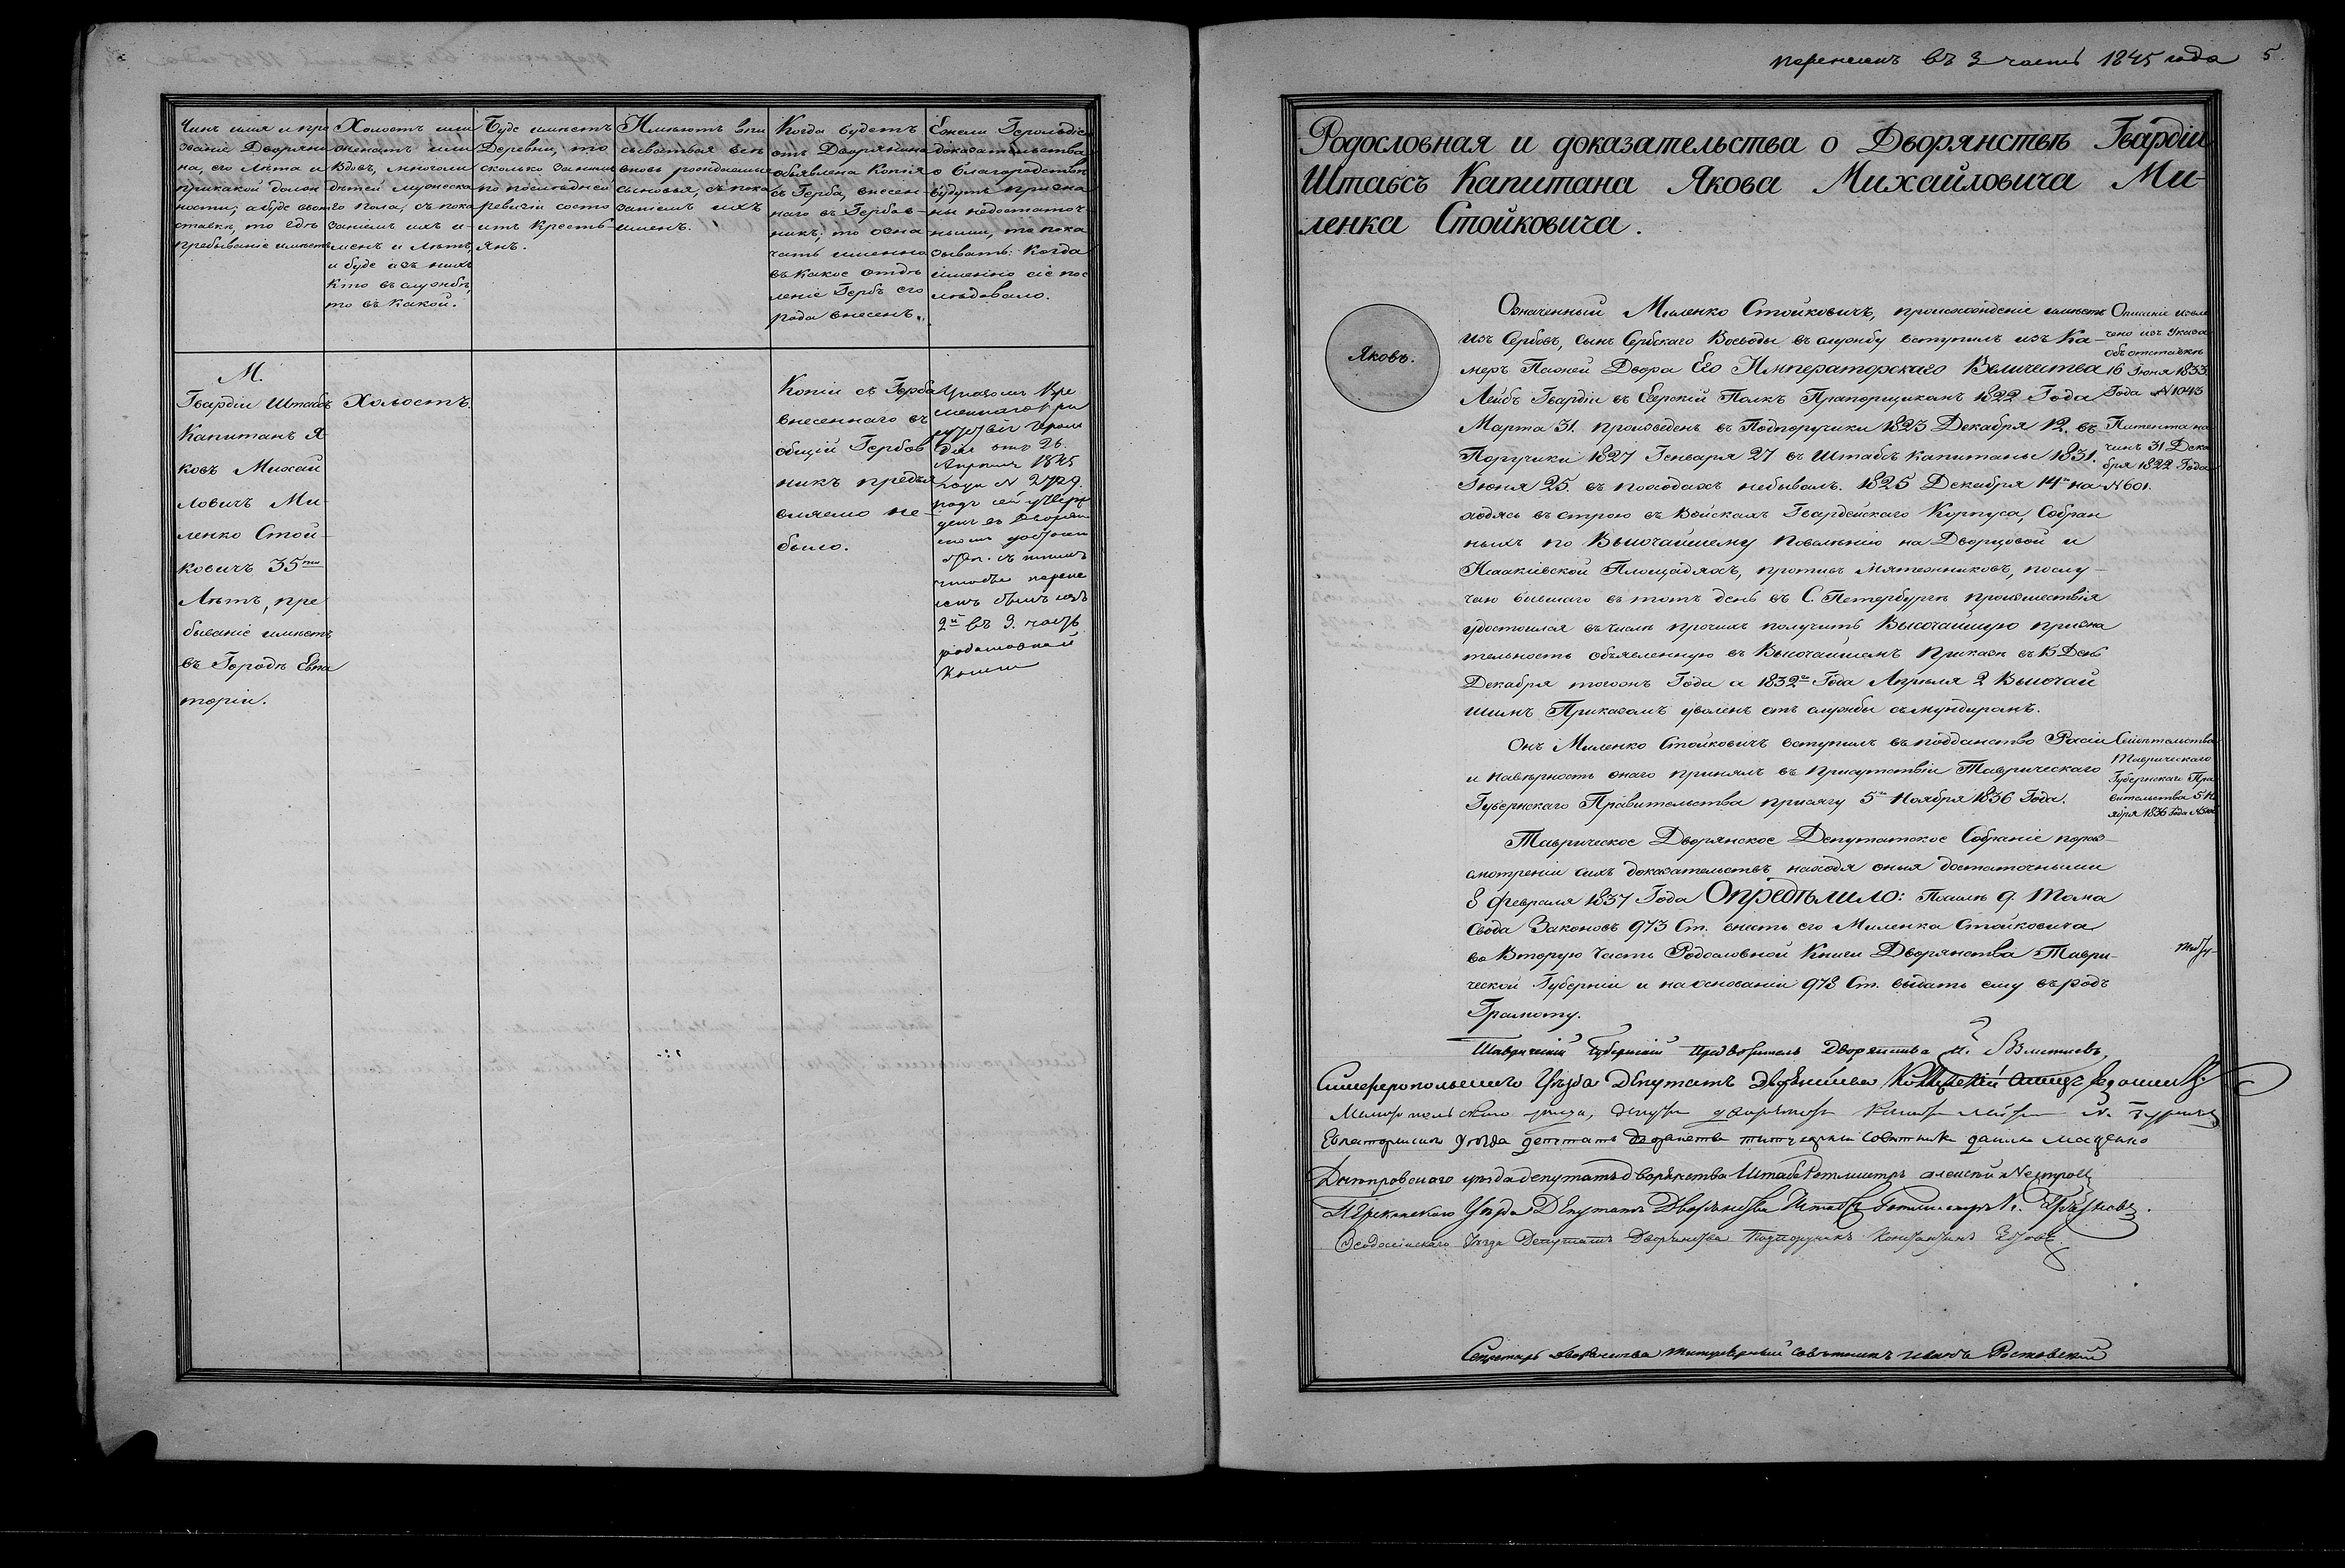 Чинъ имя и про
званіе Дворяни
на, его лѣта и
при какой долж
ности; а буде въ от
ставкѣ, то гдѣ
пребываніе имѣетъ
Холостъ или
женатъ или
Вдовъ, много ли
дѣтей мужеска
го пола, съ пока
заніемъ ихъ и
менъ и лѣтъ,
и буде изъ нихъ
кто въ службѣ,
то въ какой.
Буде имѣетъ
Деревни, то
сколько за ними
по послѣдней
ревизіи состо
итъ Кресть-
янъ.
Имѣютъ впи
сываться всѣ
вновь рождаемые
сыновья, съ пока
заніемъ ихъ
именъ.
Когда будетъ
отъ Дворянина
объявлена Копія
съ Герба, внесен-
наго въ Гербов-
никъ; то озна
чать именно
въ какое отдѣ
леніе Гербъ его
рода внесенъ.
Ежели Герольдіею
доказательства
о благородствѣ
будутъ призна
ны недостаточ-
ными, то пока
зывать: когда
именно сіе пос
лѣдовало.
М.
Гвардіи Штабсъ
Капитанъ Я-
ковъ Михай
ловичъ Ми-
ленко Стой-
ковичъ 35ти
Лѣтъ, пре
бываніе имѣетъ
въ Городѣ Евпа
торіи.
Холостъ.
Копіи съ Герба
внесеннаго въ
общій Гербов
никъ предъя
вляемо не-
было.
Указомъ Вре
меннаго При
сутствія Героль
діи отъ 26.
Апрѣля 1845
года № 2729.
родъ сей утверж
денъ въ Дворян
скомъ достоин
ствѣ. съ тѣмъ
чтобы пере не
сенъ былъ изъ
2й въ 3. часть
родословной
Книги
перенесенъ въ 3 часть 1845 года 5.
Родословная и доказательства о Дворянствѣ Гвардіи
Штабсъ Капитана Якова Михайловича Ми-
ленка Стойковича.
Яковъ.
Означенный Миленко Стойковичъ, происхожденіе имѣетъ
изъ Сербовъ, сынъ Сербскаго Воеводы въ службу вступилъ изъ Ка-
меръ Пажей Двора Его Императорскаго Величества
Лейбъ Гвардіи въ Егерскій Полкъ Прапорщикомъ 1822 Года
Марта 31. произведенъ въ Подпоручики 1823 Декабря 12. въ
Поручики 1827 Генваря 27 въ Штабсъ Капитаны 1831.
Іюня 25. въ походахъ небывалъ. 1825 Декабря 14го на-
ходясь въ строю въ Войскахъ Гвардейскаго Корпуса, Собран
ныхъ по Высочайшему повелѣнію на Дворцовой и
Исаакіевской Площадяхъ, противъ мятежниковъ, послу-
чаю бывшаго въ тотъ день въ С. Петербургѣ происшествія
удостоился въ числѣ прочихъ получить Высочайшую призна
тельность объявленную въ Высочайшемъ Приказѣ въ 15 День
Декабря тогожъ Года а 1832го Года Апрѣля 2 Высочай
шимъ Приказомъ уволенъ отъ службы съ мундиромъ.
Описаніе извле
чено изъ Указа
объ отставкѣ
16 Іюня 1833
Года № 1043
Патента на
чинъ 31 Дека
бря 1822 Года
№ 601.
Онъ Миленко Стойковичъ вступилъ въ подданство Расіи
и навѣрность онаго принялъ въ присутствіи Таврическаго
Губернскаго Правительства присягу 5го Ноября 1836 Года.
Свидѣтельства
Таврическаго
Губернскаго Пра
вительства 5 Но
ября 1836 Года
Таврическое Дворянское Депутатское Собраніе поразс-
мотреніи сихъ доказательствъ находя оныя достаточными
8 февраля 1837 Года Опредѣлило: Посилѣ 9. Тома
Свода Законовъ 973 Ст. внесть его Миленка Стойковича
во Вторую Часть Родословной Книги Дворянства Таври-
ческой Губерніи и на основаніи 978 Ст. выдать ему въ родъ
Грамоту.
Таврическій Губернскій Предводитель Дворянства
Симферопольскаго Уѣзда Депутатъ Дворянства
Мелитопольскаго уѣзда, депутатъ дворянства
Евпаторійскаго Уѣзда депутатъ дворянства титулярный совѣтникъ
Днѣпровскаго уѣзда депутатъ дворянства Штабсъ Ротмистръ алексѣй
Перекопскаго Уѣзда Депутатъ Дворянства Штабсъ Ротмистръ
Феодосійскаго Уѣзда Депутатъ Дворянства Подпоручикъ Константинъ
Секретарь дворянства титулярный совѣтникъ Иванъ Ростовскій